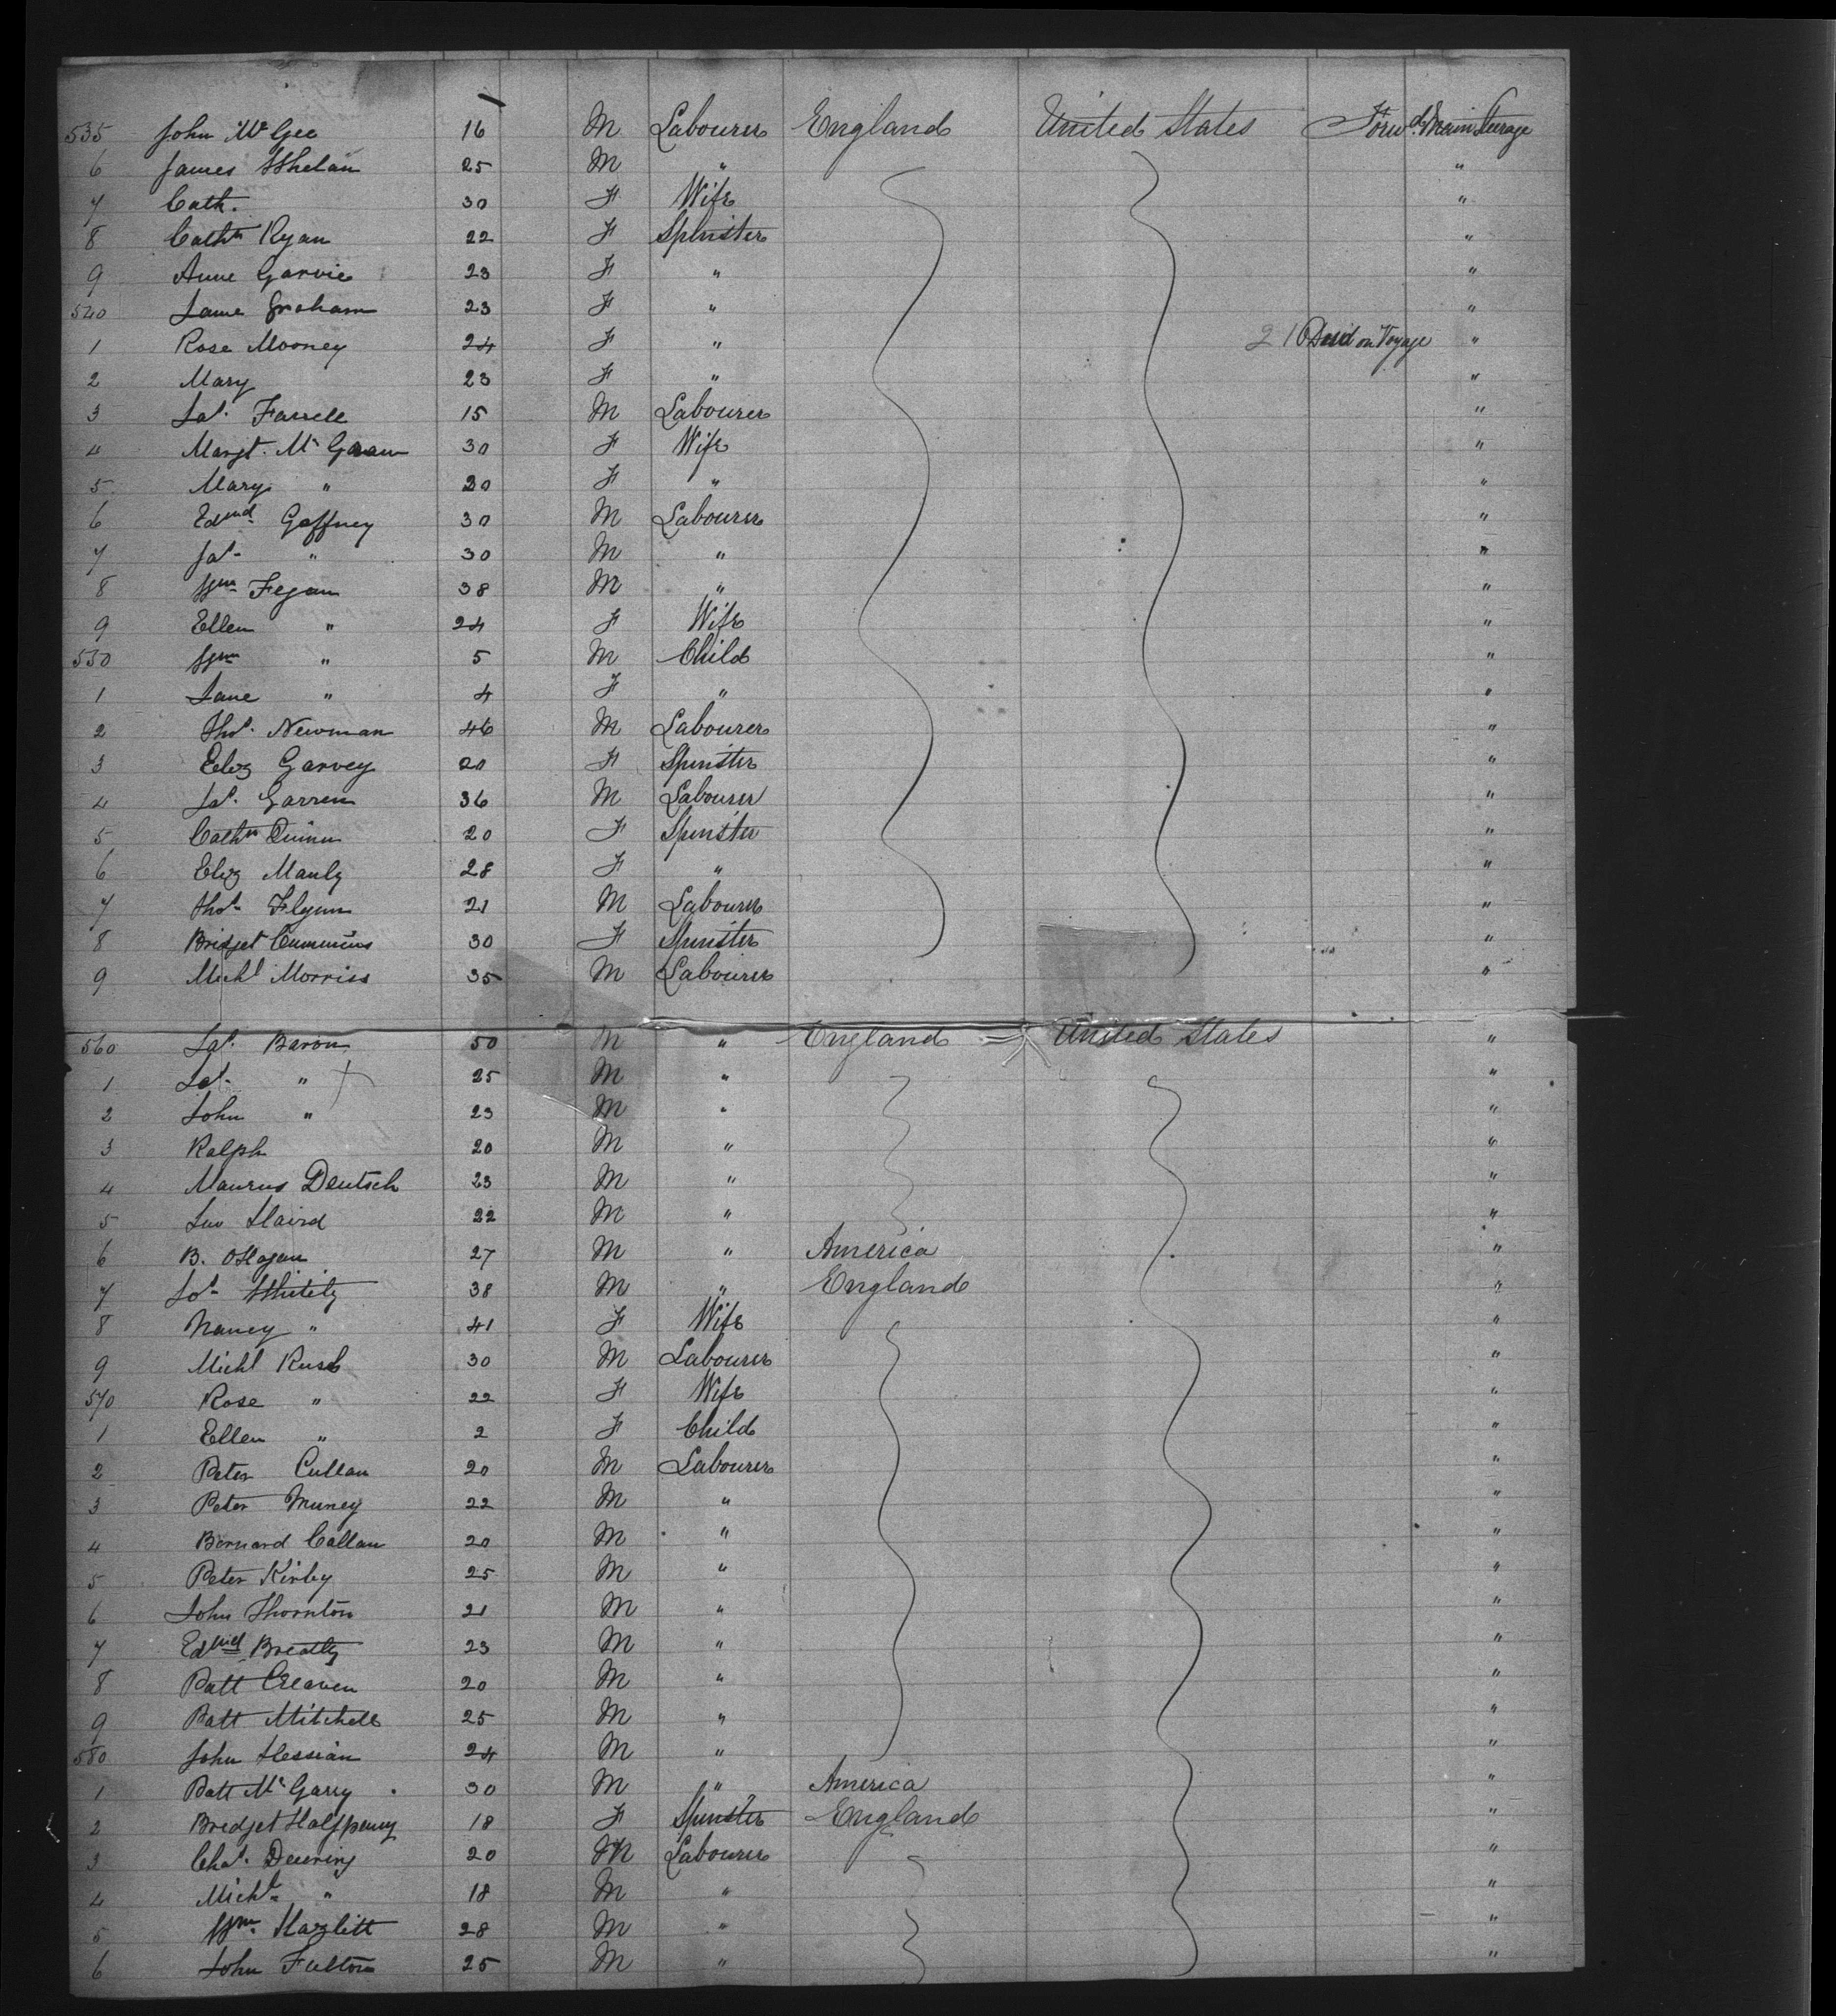 535 John McGee 16 M Labourer England United States Forwd. Main Steerage
6 James Whelan 25 M " "
7 Cath. 30 F Wife "
8 Cathn Ryan 22 F Spinster "
9 Anne Garvie 23 F " "
540 Jane Graham 23 F " "
1 Rose Mooney 24 F " Died on Voyage "
2 Mary 23 F " "
3 Jas. Farrell 15 M Labourer "
4 Margt. Mc 30 F Wife "
5 Mary " 20 F " "
6 Edmd Gaffney 30 M Labourer "
7 Jas. " 30 M " "
8 Wm Fegan 38 M " "
9 Ellen " 24 F Wife "
550 Wm " 5 M Child "
1 Jane " 4 F " "
2 Thos. Newman 46 M Labourer "
3 Eliz Garvey 20 F Spinster "
4 Jas. Garren 36 M Labourer "
5 Cathn Quinn 20 F Spinster "
6 Eliz Manly 28 F " "
7 Thos. Flynn 21 M Labourer "
8 Bridget Cummins 30 F Spinster "
9 Michl Morriss 35 M Labourer "
560 Jas. Baron 50 M " England United States "
1 Jas. " 25 M " "
2 John " 23 M " "
3 Ralph 20 M " "
4 Maurus Deutsch 23 M " "
5 Haird 22 M " "
6 B. OHagan 27 M " America "
7 Jos. Whitely 38 M " England "
8 Nancy " 41 F Wife "
9 Michl Rush 30 M Labourer "
570 Rose " 22 F Wife "
1 Ellen " 2 F Child "
2 Peter Cullan 20 M Labourer "
3 Peter Muney 22 M " "
4 Bernard Callan 20 M " "
5 Peter Kirby 25 M " "
6 John Thornton 21 M " "
7 Edmd. 23 M " "
8 Patt Creaven 20 M " "
9 Patt Mitchell 25 M " "
580 John Hessian 24 M " "
1 Patt McGarry 30 M " America "
2 Bridget Halfpenny 18 F Spinster England "
3 Chas. Deering 20 M Labourer "
4 Michl. " 18 M " "
5 Wm. Hazlitt 28 M " "
6 John Fulton 25 M " "